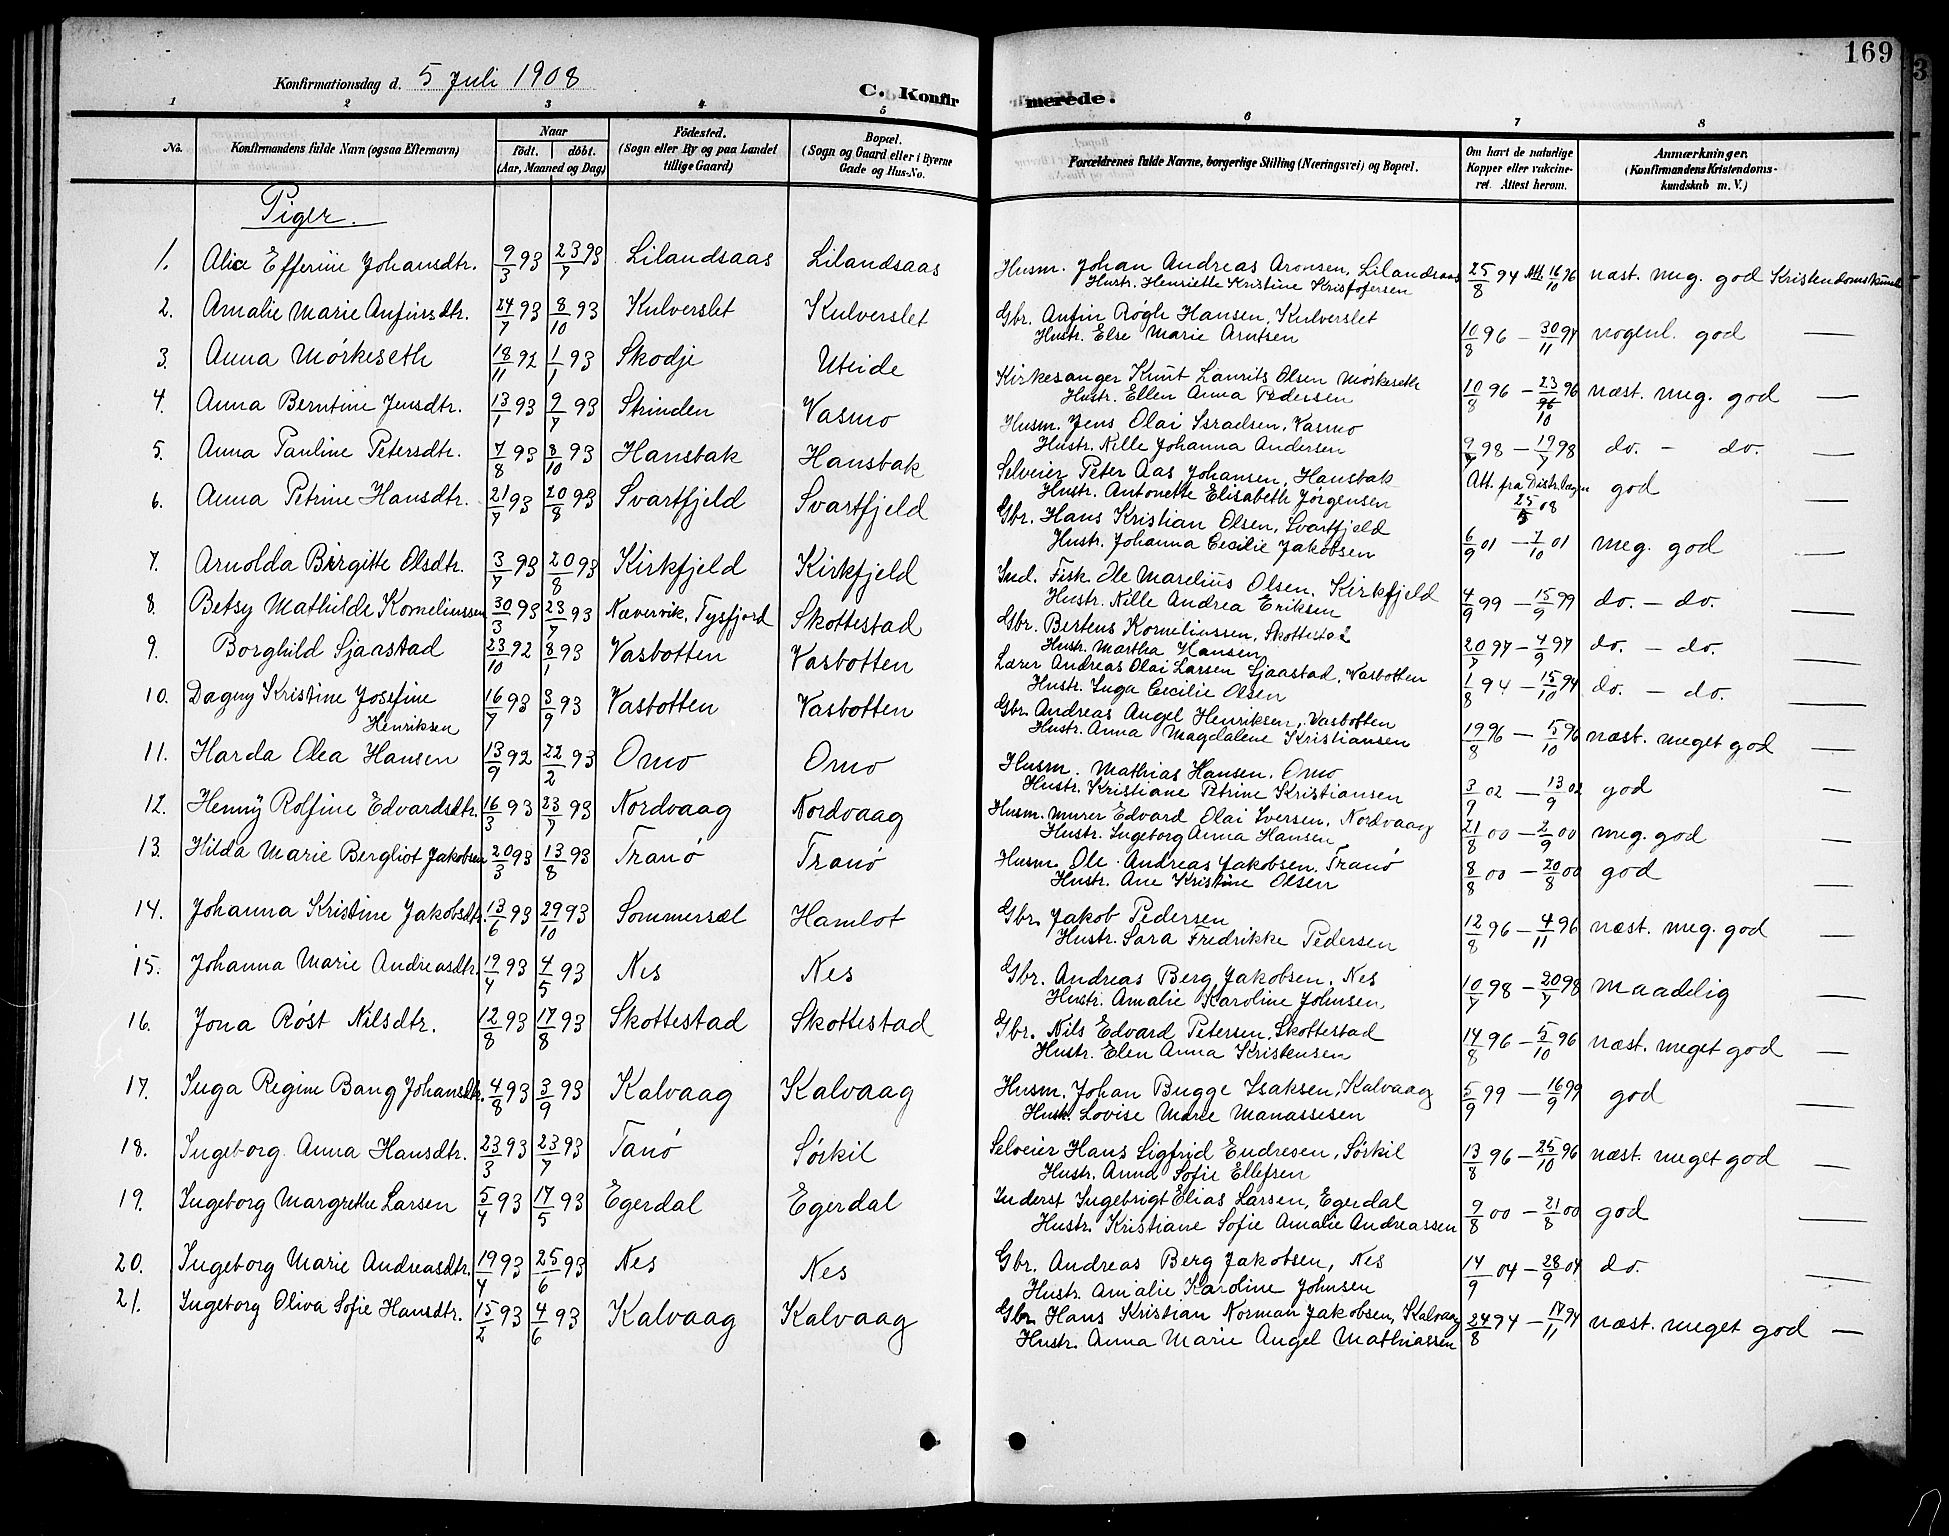 169
Konfirmationsdag d. 5 Juli 1908
C. Konfir merede.
1 2 3 4 5 6 7 8
No. Konfirmandens fulde Navn (ogsaa Efternavn) Naar født. døbt. (Aar, Maaned og Dag) Fødested. (Sogn eller By og paa Landet tillige Gaard) Bopæl. (Sogn og Gaard eller i Byerne Gade og Hus-No. Forældrenes fulde Navne, borgerlige Stilling (Næringsvei) og Bopæl. Om havt de naturlige Kopper eller vakcineret. Attest herom. Anmærkninger. (Konfirmandens Kristendomskundskab m. V.)
Piger.
1. Alice Efferine Johansdtr. 9/3 93 23/7 93 Lilandsaas Lilandsaas Husm. Johan Andreas Aronsen, Lilandsaas 25/8 94 Att. 16/10 96 næst. meg. god
Hustr. Henriette Kristine Kristofersen
2. Amalie Marie Anfinsdtr. 24/7 93 8/10 93 Kulverslet Kulverslet Gbr. Anfin Røgh Hansen, Kulverslet 10/8 96 — 30/11 97 nogenl. god —
Hustr. Else Marie Arntsen
3. Anna Mørkeseth 18/11 92 1/1 93 Skodje Uteide Kirkesanger Knut Laurits Olsen Mørkeseth 10/8 96 — 23/10 96 næst. meg. god —
Hustr. Ellen Anna Pedersen
4. Anna Berntine Jensdtr. 13/1 93 9/7 93 Skinden Vasmo Husm. Jens Olai Israelsen, Vasmo 9/7 98 — 19/7 98 do. — do. —
Hustr. Nille Johanna Andersen
5. Anna Pauline Petersdtr. 7/8 93 8/10 93 Hansbak Hansbak Selveier Peter Aas Johansen, Hansbak Att. fra Distr.lægen 25/5 08 god —
Hustr. Antonette Elisabeth Jörgensen
6. Anna Petrine Hansdtr. 21/7 93 20/8 93 Svartfjeld Svartfjeld Gbr. Hans Kristian Olsen, Svartfjeld 6/9 01 — 7/10 01 meg. god —
Hustr. Johanna Cecilie Jakobsen
7. Arnolda Birgitte Olsdtr. 3/7 93 20/8 93 Kirkfjeld Kirkfjeld Ind. Fisk. Ole Marelius Olsen, Kirkfjeld 4/9 99 — 15/9 99 do. — do. —
Hustr. Nille Andrea Eriksen
8. Betsy Mathilde Korneliussen 30/3 93 23/7 93 Nævervik, Tysfjord Skottestad Gbr. Bertens Korneliussen, Skottestad 20/7 97 — 4/9 97 do. — do. —
Hustr. Martha Hansen
9. Borghild Sjaastad 23/10 92 8/1 93 Vasbotten Vasbotten Lærer Andreas Olai Larsen Sjaastad, Vasbotten 1/8 94 — 15/10 94 do. — do. —
Hustr. Inga Cecilie Olsen
10. Dagny Kristine Josefine Henriksen 16/7 93 3/9 93 Vasbotten Vasbotten Gbr. Andreas Angel Henriksen, Vasbotten 19/8 96 — 5/10 96 næst. meget god —
Hustr. Anna Magdalene Kristiansen
11. Harda Olea Hansen 13/9 92 22/2 93 Omo Omo Husm. Mathias Hansen, Omo 3/9 02 — 13/9 02 god —
Hustr. Kristiane Petrine Kristiansen
12. Henny Rolfine Edvardsdtr. 16/3 93 23/7 93 Nordvaag Nordvaag Husm. Murer Edvard Olai Iversen, Nordvaag 21/8 00 — 2/9 00 meg. god —
Hustr. Ingeborg Anna Hansen
13. Hilda Marie Bergliot Jakobsen 20/3 93 13/8 93 Tranö Tranö Husm. Ole Andreas Jakobsen, Tranö 8/8 00 — 20/8 00 god —
Hustr. Ane Kristine Olsen
14. Johanna Kristine Jakobsdtr. 13/6 93 29/10 93 Sommersæl Hamlot Gbr. Jakob Pedersen 12/8 96 — 4/11 96 næst. meg. god —
Hustr. Sara Fredrikke Pedersen
15. Johanna Marie Andreasdtr. 19/4 93 4/5 93 Nes Nes Gbr. Andreas Berg Jakobsen, Nes 10/7 98 — 20/7 98 maadelig —
Hustr. Amalie Karoline Johnsen,
16. Jona Röst Nilsdtr. 12/8 93 17/8 93 Skottestad Skottestad Gbr. Nils Edvard Petersen, Skottestad 14/8 96 — 5/10 96 næst. meget god —
Hustr. Elen Anna Kristensen
17. Inga Regine Bang Johansdtr. 4/8 93 3/9 93 Kalvaag Kalvaag Husm. Johan Bugge Isaksen, Kalvaag 5/9 99 — 16/9 99 god —
Hustr. Lovise Marie Manassesen
18. Ingeborg Anna Hansdtr. 23/3 93 23/7 93 Tanö Sörkil Selveier Hans Sigfrid Endresen, Sörkil 13/8 96 — 25/10 96 næst. meget god —
Hustr. Anna Sofie Ellefsen
19. Ingeborg Margrethe Larsen 5/4 93 17/5 93 Egerdal Egerdal Inderst Ingebrigt Elias Larsen, Egerdal 9/8 00 — 21/8 00 god —
Hustr. Kristiane Sofie Amalie Andreassen
20. Ingeborg Marie Andreasdtr. 19/4 93 25/6 93 Nes Nes Gbr. Andreas Berg Jakobsen, Nes 14/9 04 — 28/9 04 do. —
Hustr. Amalie Karoline Johnsen
21. Ingeborg Oliva Sofie Hansdtr. 15/2 93 4/6 93 Kalvaag Kalvaag Gbr. Hans Kristian Norman Jakobsen, Kalvaag 24/8 94 — 17/11 94 næst. meget god —
Hustr. Anna Marie Angel Mathiassen